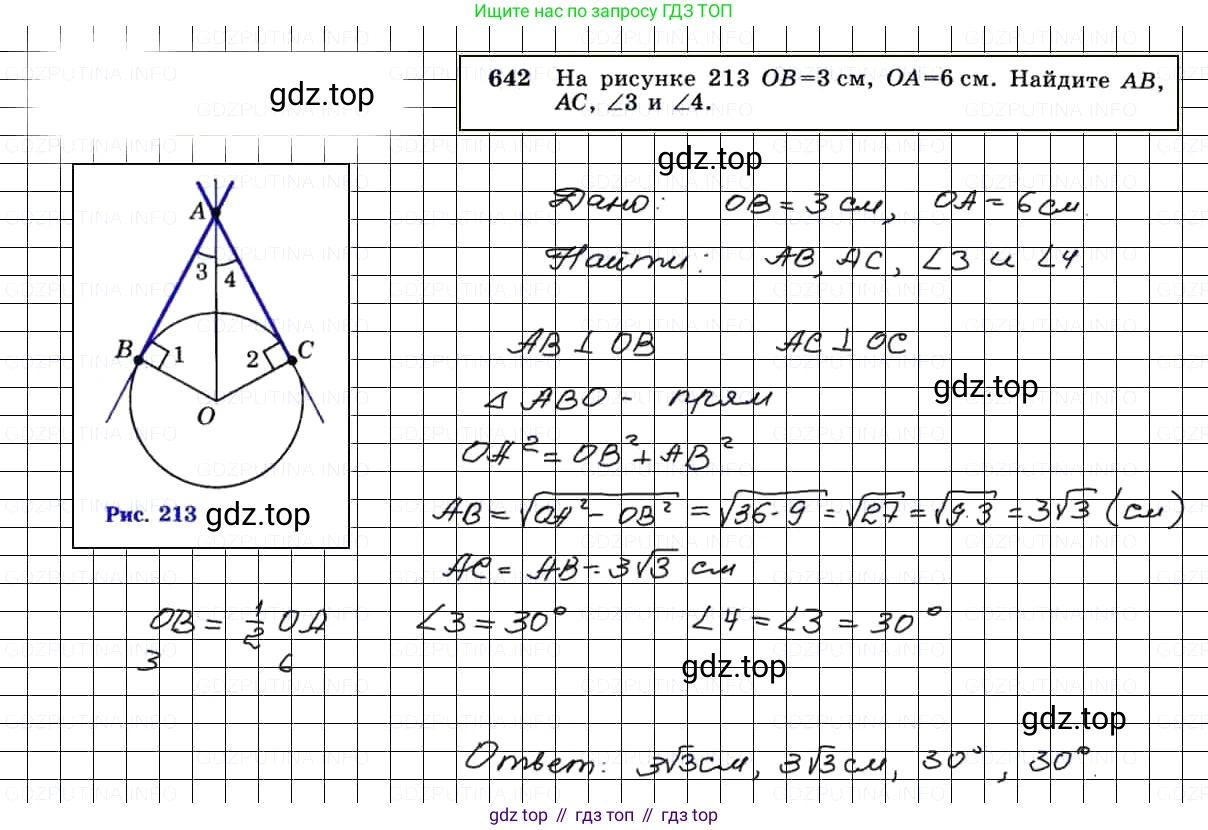 Ищите нас по запросу ГДЗ ТОП
642 На рисунке 213 OB=3 см, OA=6 см. Найдите AB,
AC, ∠3 и ∠4.
gdz.top
gdz.top
Дано: OB = 3 см, OA = 6 см.
Найти: AB, AC, ∠3 и ∠4.
A
3 4
B 1 2 C
O
Рис. 213 gdz.top
AB ⊥ OB AC ⊥ OC
gdz.top
△ ABO - прям
OA² = OB² + AB²
AB = √OA² - OB² = √36 - 9 = √27 = √9·3 = 3√3 (см)
AC = AB = 3√3 см
OB = 1/2 OA ∠3 = 30° ∠4 = ∠3 = 30°
3 6
gdz.top
gdz.top
Ответ: 3√3 см, 3√3 см, 30°, 30°.
gdz top // гдз топ // гдз top
GDZPUTINA.INFO